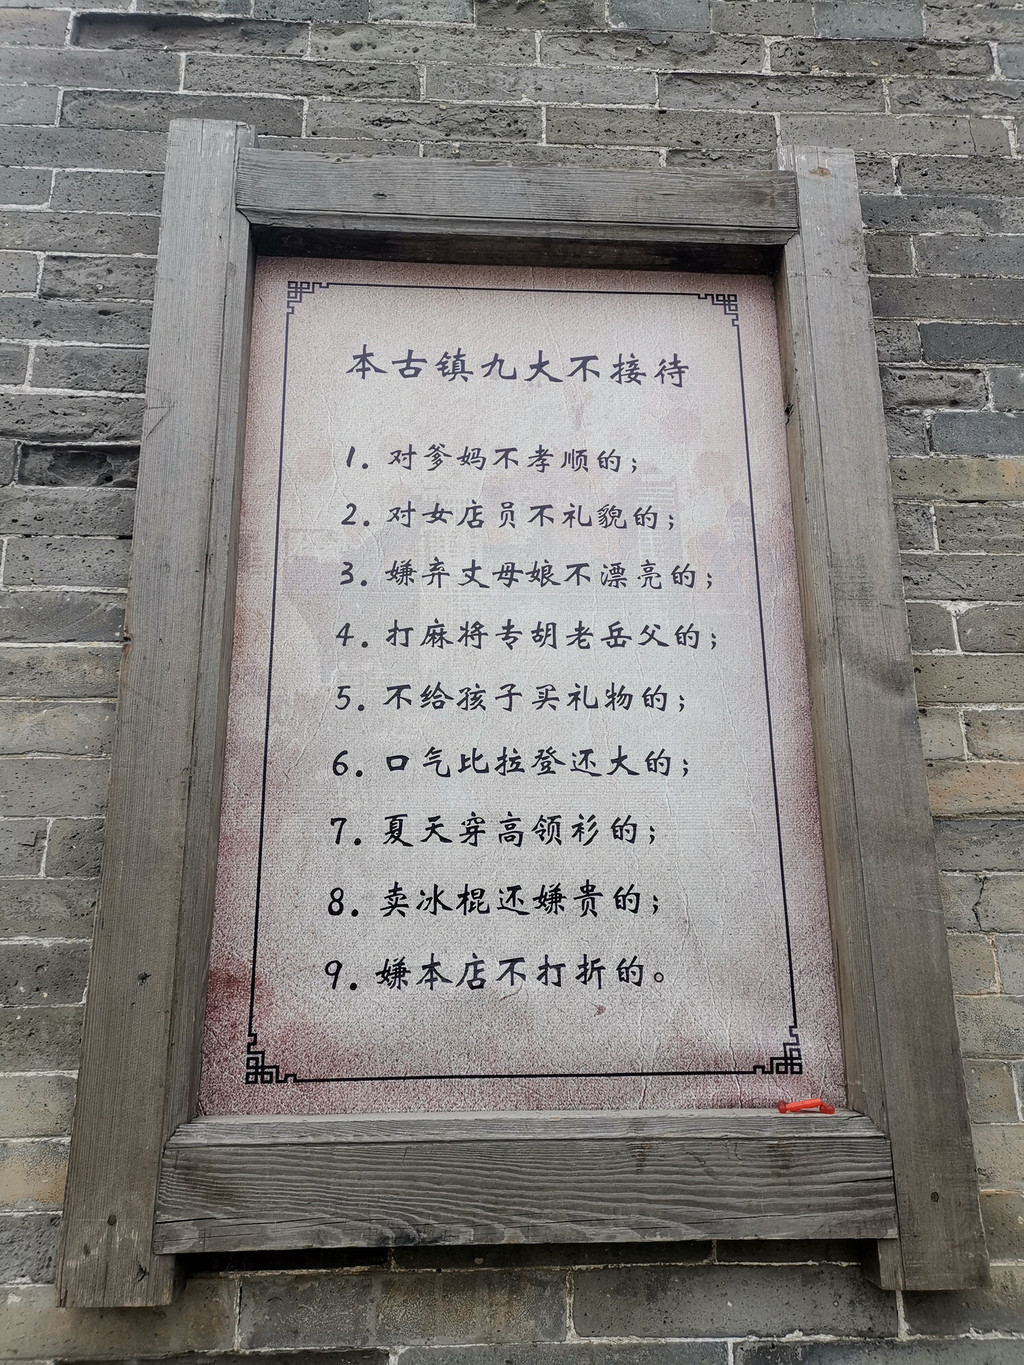 本古镇九大不接待
1. 对爹妈不孝顺的；
2. 对女店员不礼貌的；
3. 嫌弃丈母娘不漂亮的；
4. 打麻将专胡老岳父的；
5. 不给孩子买礼物的；
6. 口气比拉登还大的；
7. 夏天穿高领衫的；
8. 卖冰棍还嫌贵的；
9. 嫌本店不打折的。